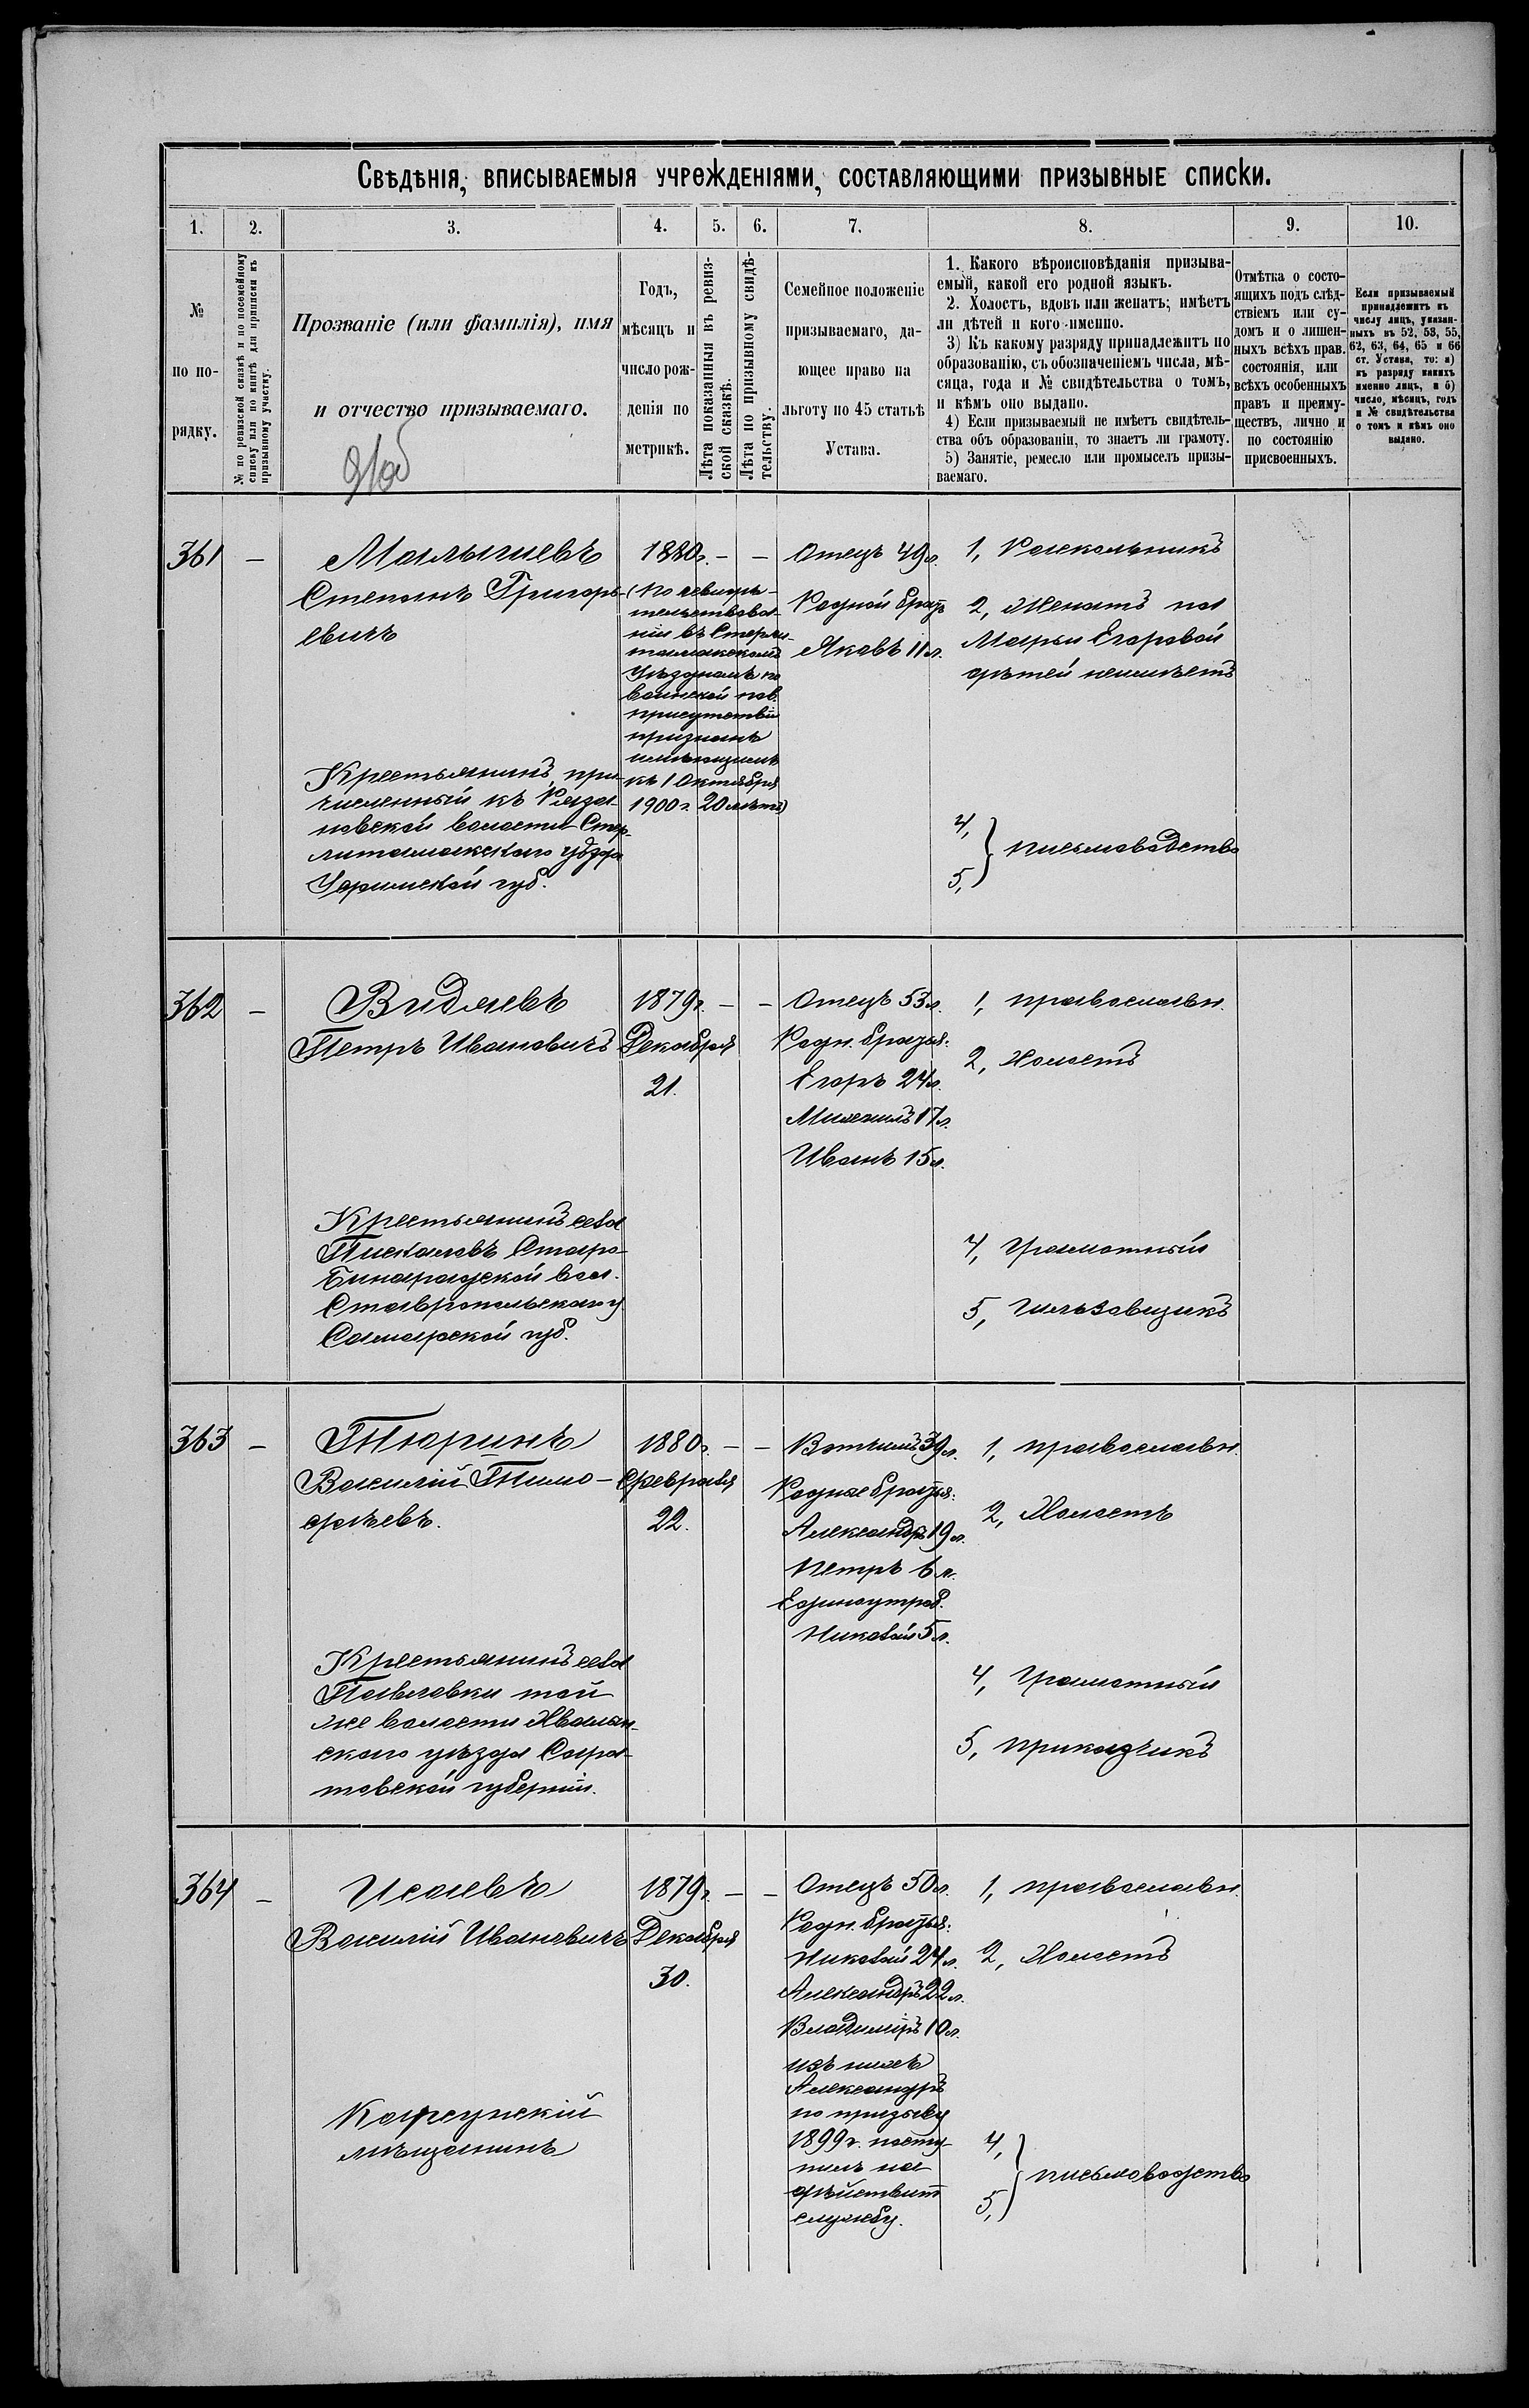 Свѣдѣнія, вписываемыя учрежденіями, составляющими призывные списки.
1.
2.
3.
4.
5.
6.
7.
8.
9.
10.
№
по по-
рядку.
№ по ревизской сказкѣ и по посемейному
списку или по книгѣ для приписки къ
призывному участку.
Прозваніе (или фамилія), имя
и отчество призываемаго.
Годъ,
мѣсяцъ и
число рож-
денія по
метрикѣ.
Лѣта показанныя въ ревиз-
ской сказкѣ.
Лѣта по призывному свидѣ-
тельству.
Семейное положеніе
призываемаго, да-
ющее право на
льготу по 45 статьѣ
Устава.
1. Какого вѣроисповѣданія призыва-
емый, какой его родной языкъ.
2. Холостъ, вдовъ или женатъ; имѣетъ
ли дѣтей и кого именно.
3) Къ какому разряду принадлежитъ по
образованію, съ обозначеніемъ числа, мѣ-
сяца, года и № свидѣтельства о томъ,
и кѣмъ оно выдано.
4) Если призываемый не имѣетъ свидѣтель-
ства объ образованіи, то знаетъ ли грамоту.
5) Занятіе, ремесло или промыселъ призы-
ваемаго.
Отмѣтка о состо-
ящихъ подъ слѣд-
ствіемъ или су-
домъ и о лишен-
ныхъ всѣхъ прав.
состоянія, или
всѣхъ особенныхъ
правъ и преиму-
ществъ, лично и
по состоянію
присвоенныхъ.
Если призываемый
принадлежитъ къ
числу лицъ, указан-
ныхъ въ 52, 53, 55,
62, 63, 64, 65 и 66
ст. Устава, то: а)
къ разряду какихъ
именно лицъ, и б)
число, мѣсяцъ, годъ
и № свидѣтельства
о томъ и кѣмъ оно
выдано.
361 –
Малышевъ
Степанъ Григорь-
евичъ
Крестьянинъ, при-
численный къ Рязa-
новской волости Стер-
литамакскаго уѣзда
Уфимской губ.
1880г. – –
(По освидѣ-
тельствова-
ніи въ Стерли-
тамакскомъ
Уѣздномъ по
воинской пов.
присутствіи
признанъ
имѣющимъ
къ 1 Октября
1900г. 20 лѣтъ)
Отецъ 49л.
Родной братъ
Яковъ 11л.
1, Раскольникъ
2, Женатъ на
Марьи Егоровой
дѣтей неимѣетъ
4,
5, } письмоводство
362 –
Видяевъ
Петръ Ивановичъ
Крестьянинъ села
Пискаловъ Старо-
Бинарадской вол.
Ставропольскаго у.
Самарской губ.
1879г. – –
Декабря
21.
Отецъ 53л.
Родн. братья:
Егоръ 24л.
Михаилъ 17л.
Иванъ 15л.
1, православн.
2, Холостъ
4, Грамотный
5, Гильзовщикъ
363 –
Тюринъ
Василій Тимо-
фѣевъ.
Крестьянинъ села
Павловки той
же волости Хвалын-
скаго уѣзда Сара-
товской губерніи.
1880г. – –
Февраля
22.
Вотчимъ 39л.
Родные братья:
Александръ 19л.
Петръ 6л.
Единоутроб.
Николай 5л.
1, православн.
2, Холостъ
4, Грамотный
5, приказчикъ
364 –
Исаевъ
Василій Ивановичъ
Карсунскій
мѣщанинъ
1879г. – –
Декабря
30.
Отецъ 50л.
Родн. братья:
Николай 24л.
Александръ 22л.
Владиміръ 10л.
изъ нихъ
Александръ
по призыву
1899г. посту-
пилъ на
дѣйствит
службу.
1, православн.
2, Холостъ
4,
5, } письмоводство